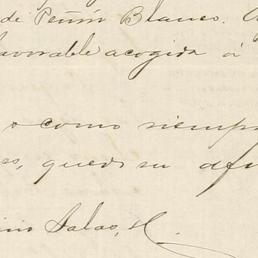 de Peñón Blanco.
favorable acogida á
como siempre
quedo su
Salas, H.